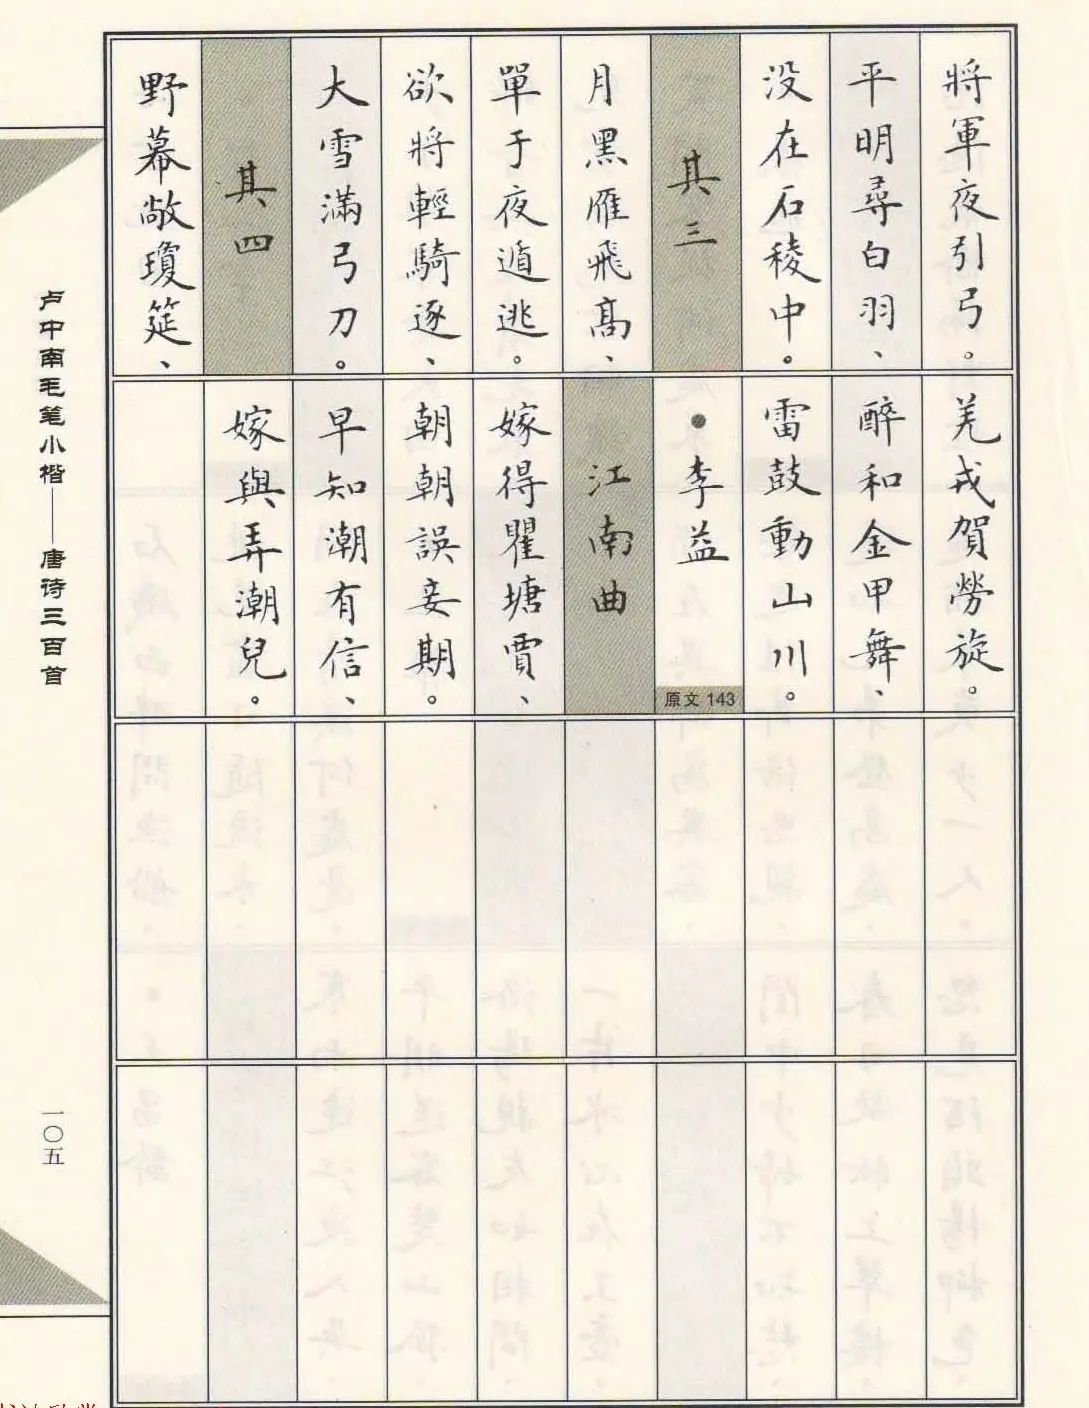 將軍夜引弓。
平明尋白羽、
没在石稜中。
其三
月黑雁飛高、
單于夜遁逃。
欲將輕騎逐、
大雪滿弓刀。
其四
野幕敞瓊筵、
羌戎賀勞旋。
醉和金甲舞、
雷鼓動山川。
●李益
原文 143
江南曲
嫁得瞿塘賈、
朝朝誤妾期。
早知潮有信、
嫁與弄潮兒。
卢中南毛笔小楷——唐诗三百首
一〇五